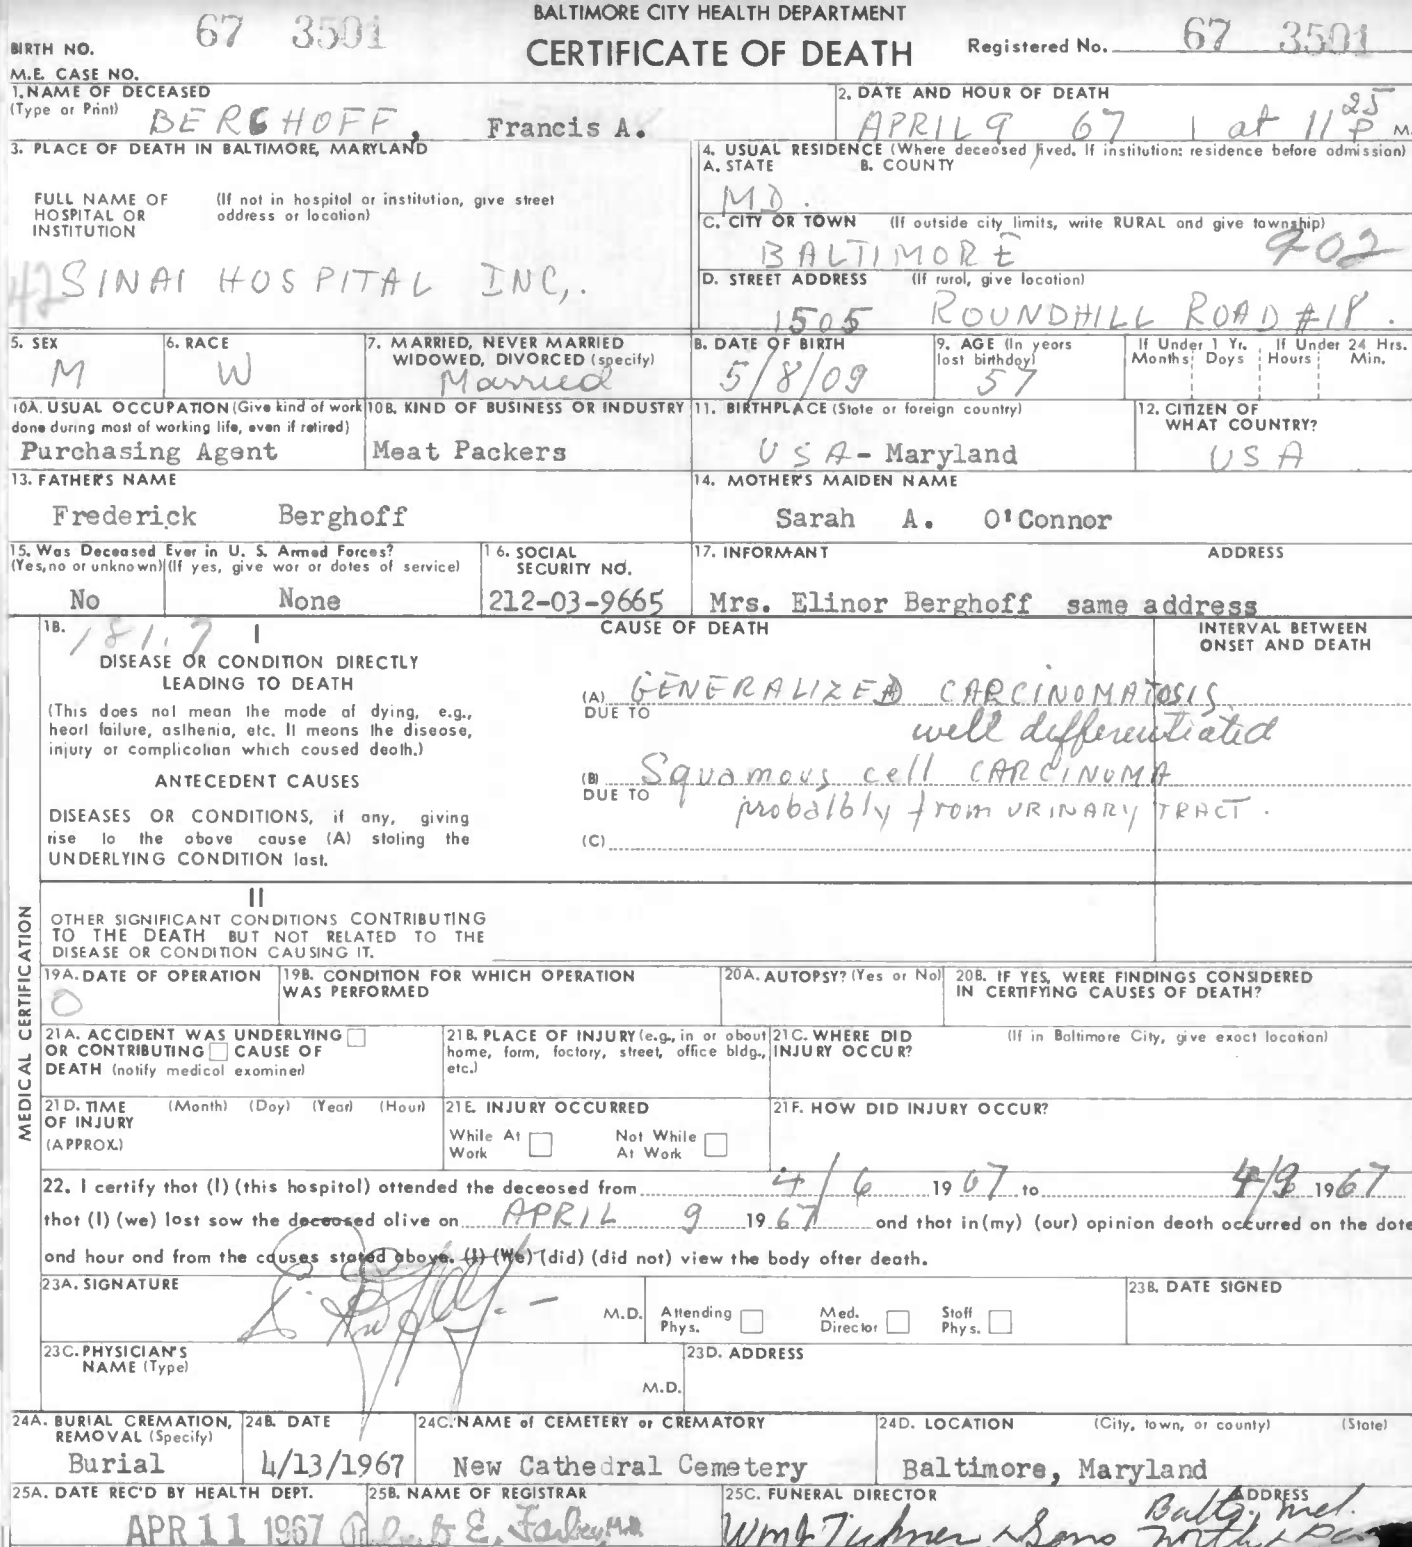 BALTIMORE CITY HEALTH DEPARTMENT
BIRTH NO. 67 3501 CERTIFICATE OF DEATH Registered No. 67 3501
M.E. CASE NO.
1. NAME OF DECEASED
(Type or Print) BERGHOFF, Francis A.
2. DATE AND HOUR OF DEATH
APRIL 9 67 at 11 25 P M.
3. PLACE OF DEATH IN BALTIMORE, MARYLAND
FULL NAME OF HOSPITAL OR INSTITUTION (If not in hospital or institution, give street address or location)
42 SINAI HOSPITAL INC,.
4. USUAL RESIDENCE (Where deceased lived. If institution: residence before admission)
A. STATE B. COUNTY
MD.
C. CITY OR TOWN (If outside city limits, write RURAL and give township)
BALTIMORE 902
D. STREET ADDRESS (If rural, give location)
1505 ROUNDHILL ROAD #18.
5. SEX
M
6. RACE
W
7. MARRIED, NEVER MARRIED
WIDOWED, DIVORCED (specify)
Married
8. DATE OF BIRTH
5/8/09
9. AGE (In years
last birthday)
57
If Under 1 Yr. If Under 24 Hrs.
Months Days Hours Min.
10A. USUAL OCCUPATION (Give kind of work
done during most of working life, even if retired)
Purchasing Agent
10B. KIND OF BUSINESS OR INDUSTRY
Meat Packers
11. BIRTHPLACE (State or foreign country)
USA - Maryland
12. CITIZEN OF
WHAT COUNTRY?
USA
13. FATHER'S NAME
Frederick Berghoff
14. MOTHER'S MAIDEN NAME
Sarah A. O'Connor
15. Was Deceased Ever in U. S. Armed Forces?
(Yes, no or unknown) (If yes, give war or dates of service)
No None
16. SOCIAL
SECURITY NO.
212-03-9665
17. INFORMANT ADDRESS
Mrs. Elinor Berghoff same address
18. 181.9 I CAUSE OF DEATH INTERVAL BETWEEN
ONSET AND DEATH
DISEASE OR CONDITION DIRECTLY
LEADING TO DEATH
(This does not mean the mode of dying, e.g.,
heart failure, asthenia, etc. It means the disease,
injury or complication which caused death.)
ANTECEDENT CAUSES
DISEASES OR CONDITIONS, if any, giving
rise to the above cause (A) stating the
UNDERLYING CONDITION last.
(A) GENERALIZED CARCINOMATOSIS
DUE TO
well differentiated
(B) Squamous cell CARCINOMA
DUE TO probalbly from URINARY TRACT.
(C)
II
OTHER SIGNIFICANT CONDITIONS CONTRIBUTING
TO THE DEATH BUT NOT RELATED TO THE
DISEASE OR CONDITION CAUSING IT.
MEDICAL CERTIFICATION
19A. DATE OF OPERATION
0
19B. CONDITION FOR WHICH OPERATION
WAS PERFORMED
20A. AUTOPSY? (Yes or No)
20B. IF YES, WERE FINDINGS CONSIDERED
IN CERTIFYING CAUSES OF DEATH?
21A. ACCIDENT WAS UNDERLYING
OR CONTRIBUTING CAUSE OF
DEATH (notify medical examiner)
21B. PLACE OF INJURY (e.g., in or about
home, farm, factory, street, office bldg.,
etc.)
21C. WHERE DID (If in Baltimore City, give exact location)
INJURY OCCUR?
21D. TIME (Month) (Day) (Year) (Hour)
OF INJURY
(APPROX.)
21E. INJURY OCCURRED
While At Work Not While At Work
21F. HOW DID INJURY OCCUR?
22. I certify that (I) (this hospital) attended the deceased from 4/6 1967 to 4/9 1967
that (I) (we) last saw the deceased alive on APRIL 9 1967 and that in (my) (our) opinion death occurred on the date
and hour and from the causes stated above. (I) (We) (did) (did not) view the body after death.
23A. SIGNATURE
M.D. Attending Phys. Med. Director Staff Phys.
23B. DATE SIGNED
23C. PHYSICIAN'S
NAME (Type)
M.D.
23D. ADDRESS
24A. BURIAL CREMATION,
REMOVAL (Specify)
Burial
24B. DATE
4/13/1967
24C. NAME of CEMETERY or CREMATORY
New Cathedral Cemetery
24D. LOCATION (City, town, or county) (State)
Baltimore, Maryland
25A. DATE REC'D BY HEALTH DEPT.
APR 11 1967
25B. NAME OF REGISTRAR
E. Farber, M.D.
25C. FUNERAL DIRECTOR ADDRESS
Wm J Tickner & Sons Balto, Md.
North &